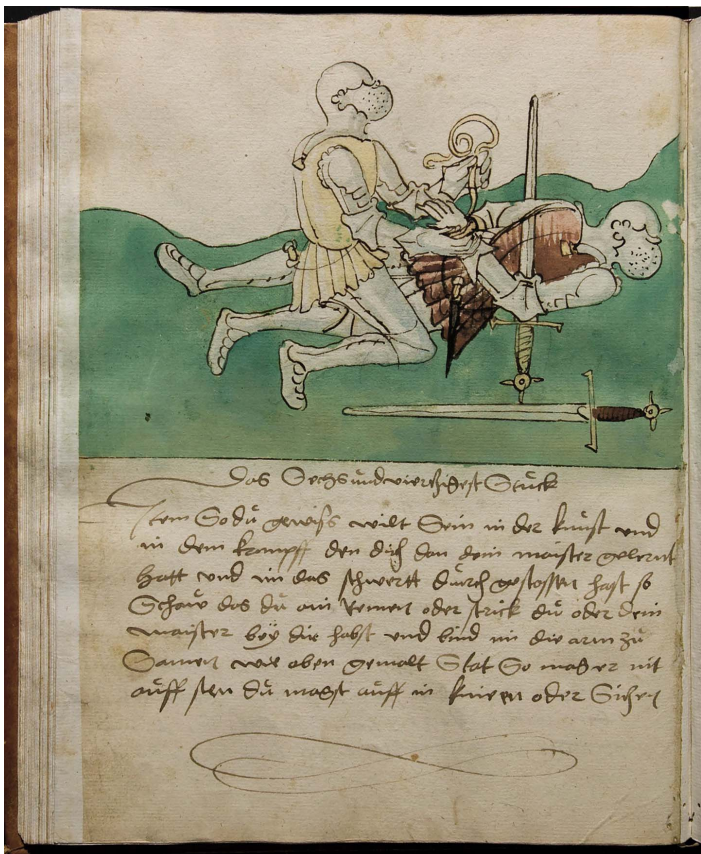 Das Sechsundvierzigest Stuck
Item So du gewiss wilt Sein in der kunst und
in dem kampff den dich dan dein maister gelernt
hatt und im das schwertt durch gestossen hast so
Schaw das du ain Remen oder strick du oder dein
maister bey dir habst und bind im die arm zu
Samen wie oben gemalt Stat So mag er nit
auff sten du magst auff im knien oder Sitzen